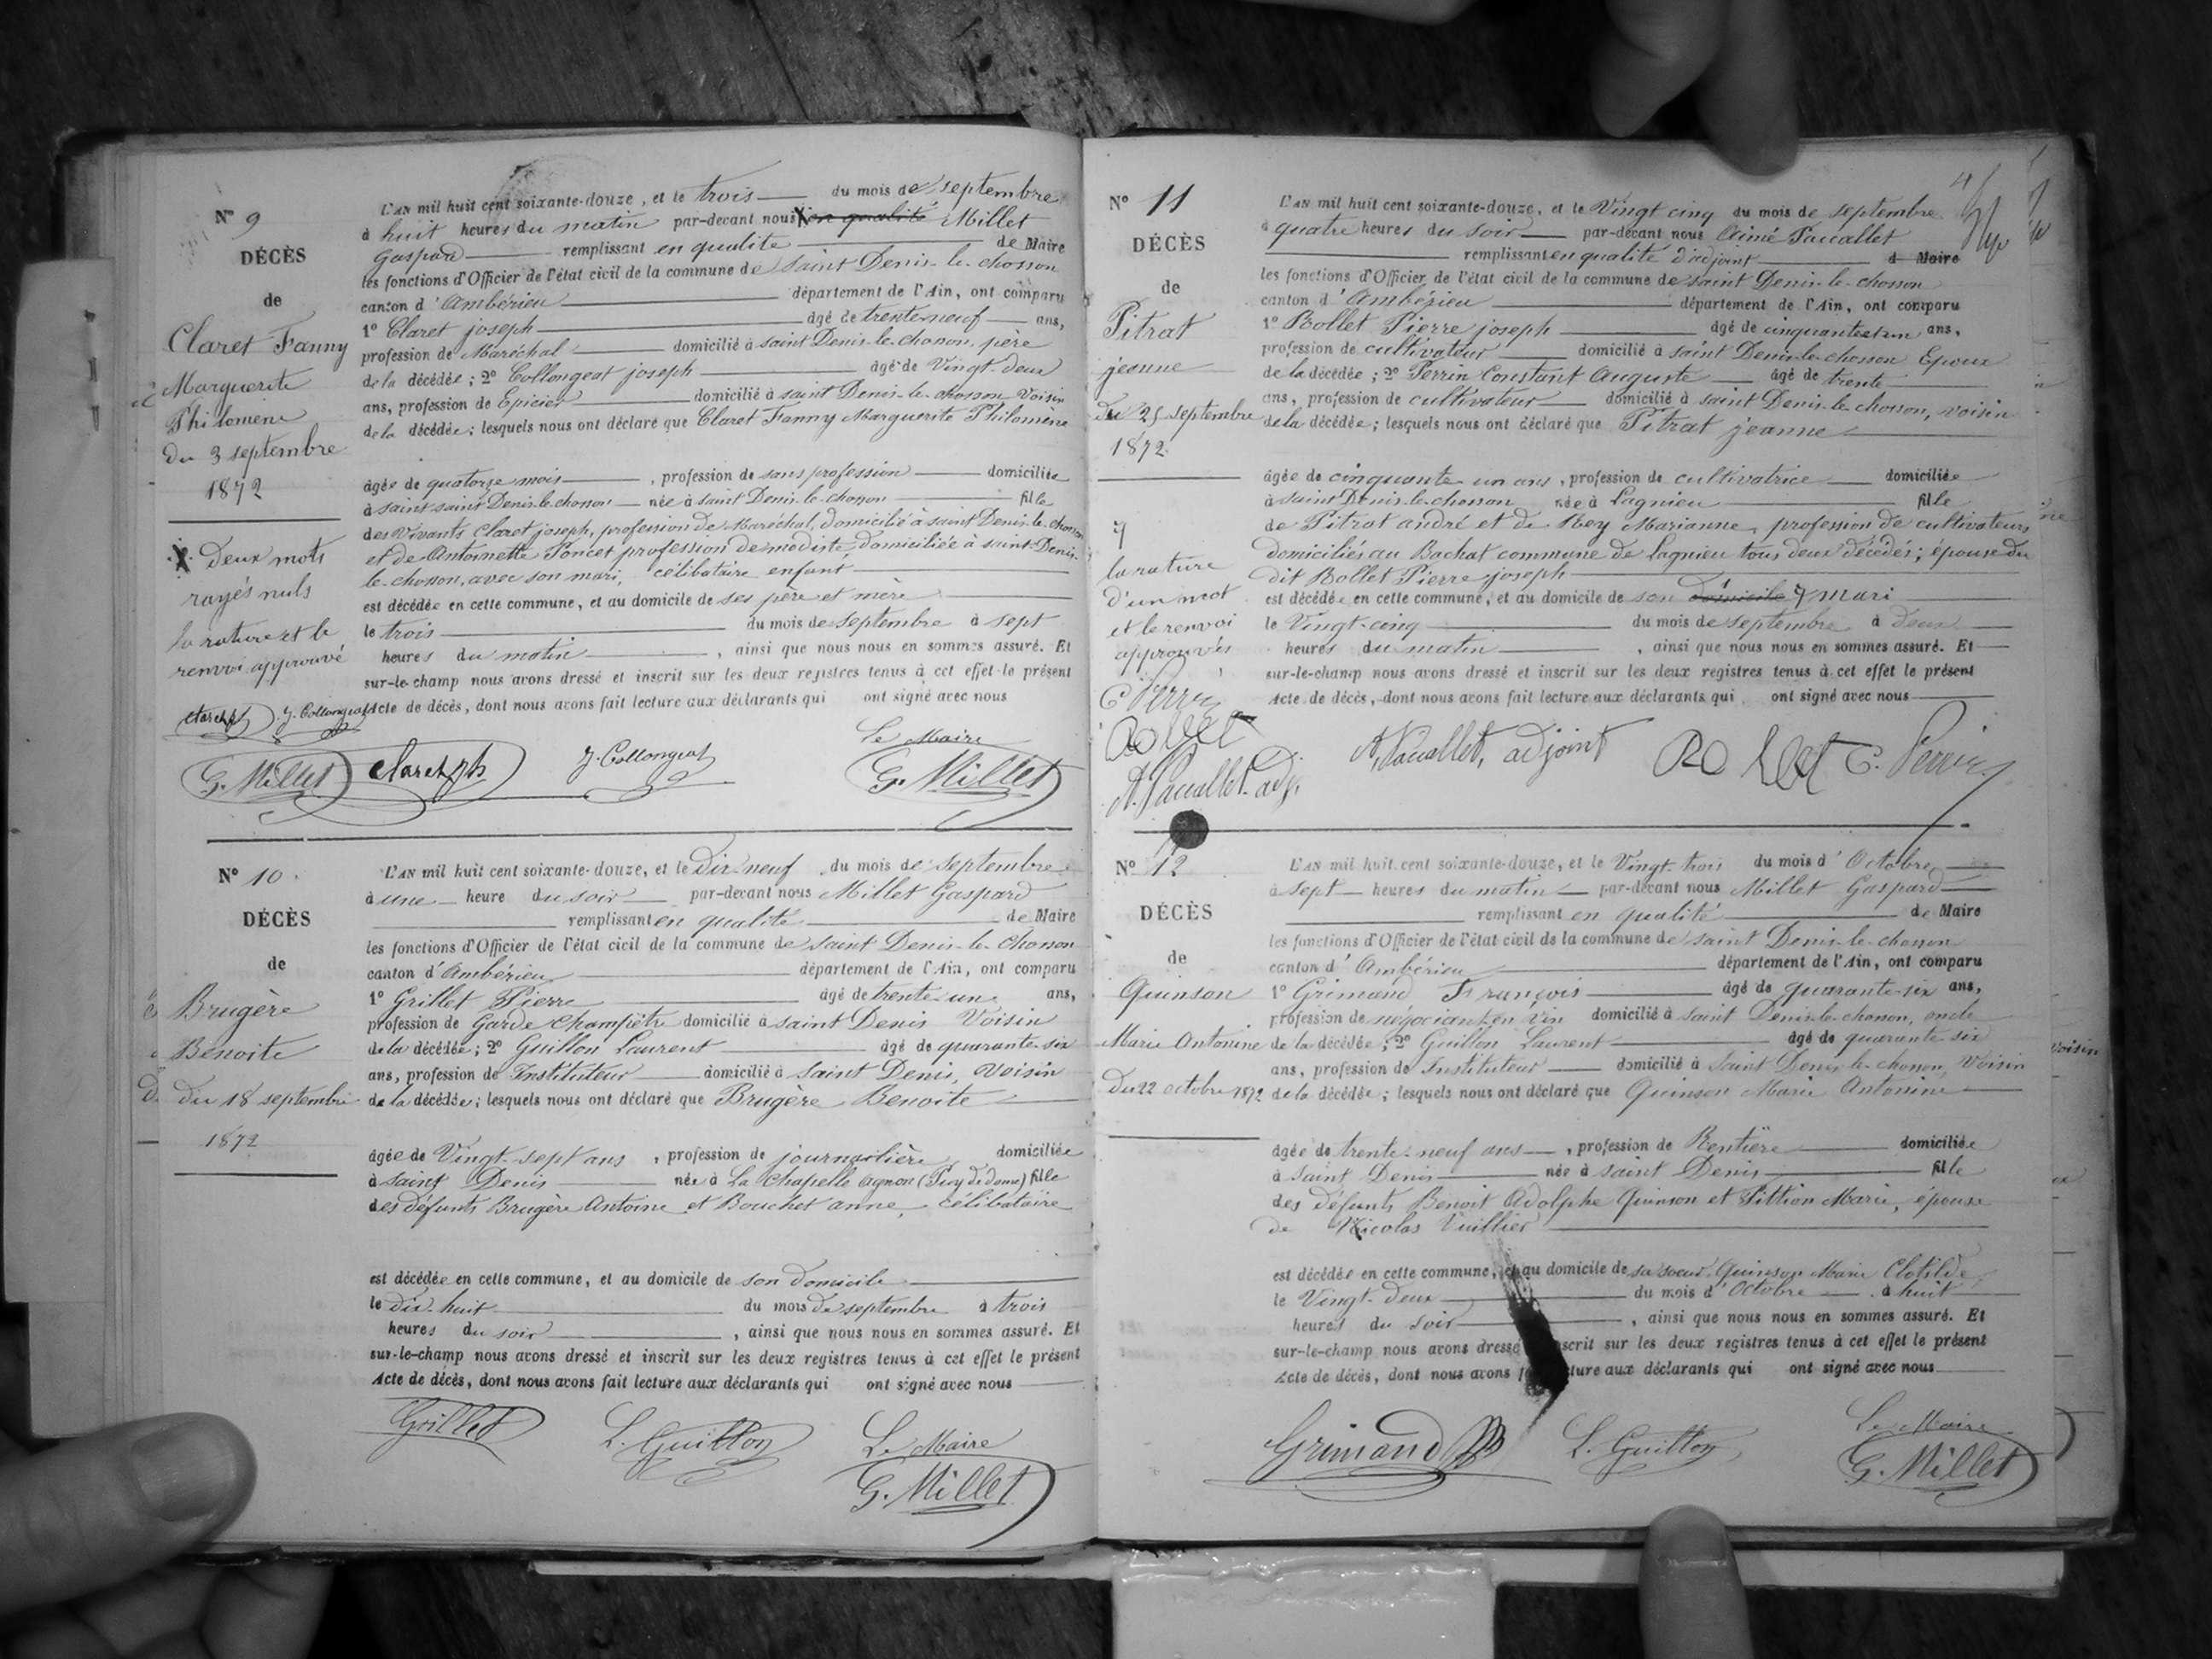 N° 9
DÉCÈS
de
Claret Fanny
Marguerite
Philomène
du 3 septembre
1872
X Deux mots
rayés nuls
la rature et le
renvoi approuvé
Claret ph J. Collongeat
G. Millet
L'AN mil huit cent soixante-douze, et le trois du mois de septembre
à huit heures du matin par-devant nous X en qualité Millet
Gaspard remplissant en qualité de Maire
les fonctions d'Officier de l'état civil de la commune de saint Denis-le-chosson
canton d'Ambérieu département de l'Ain, ont comparu
1° Claret joseph âgé de trente neuf ans,
profession de Maréchal domicilié à saint Denis-le-chosson, père
de la décédée ; 2° Collongeat joseph âgé de Vingt deux
ans, profession de Epicier domicilié à saint Denis-le-chosson Voisin
de la décédée ; lesquels nous ont déclaré que Claret Fanny Marguerite Philomène
âgée de quatorze mois , profession de sans profession domiciliée
à saint saint Denis-le-chosson née à saint Denis-le-chosson fille
des Vivants Claret joseph, profession de Maréchal, domicilié à saint Denis-le-chosson
et de Antoinette Poncet profession de modiste, domiciliée à saint-Denis-
le-chosson, avec son mari, célibataire enfant
est décédée en cette commune, et au domicile de ses père et mère
le trois du mois de septembre à sept
heures du matin , ainsi que nous nous en sommes assuré. Et
sur-le-champ nous avons dressé et inscrit sur les deux registres tenus à cet effet le présent
Acte de décès, dont nous avons fait lecture aux déclarants qui ont signé avec nous
Le Maire
Claret ph J. Collongeat G. Millet
N° 10.
DÉCÈS
de
Brugère
Benoite
du 18 septembre
1872
L'AN mil huit cent soixante-douze, et le Dix neuf du mois de septembre
à une heure du soir par-devant nous Millet Gaspard
remplissant en qualité de Maire
les fonctions d'Officier de l'état civil de la commune de saint Denis-le-chosson
canton d'Ambérieu département de l'Ain, ont comparu
1° Grillet Pierre âgé de trente-un ans,
profession de Garde champêtre domicilié à saint Denis Voisin
de la décédée ; 2° Guillon Laurent âgé de quarante-six
ans, profession de Instituteur domicilié à saint Denis, Voisin
de la décédée ; lesquels nous ont déclaré que Brugère Benoite
âgée de Vingt-sept ans , profession de journalière domiciliée
à saint Denis née à La Chapelle agnon (Puy de dome) fille
des défunts Brugère Antoine et Bouchet anne, célibataire
est décédée en cette commune, et au domicile de son domicile
le dix-huit du mois de septembre à trois
heures du soir , ainsi que nous nous en sommes assuré. Et
sur-le-champ nous avons dressé et inscrit sur les deux registres tenus à cet effet le présent
Acte de décès, dont nous avons fait lecture aux déclarants qui ont signé avec nous
Grillet L. Guillon Le Maire
G. Millet
N° 11
DÉCÈS
de
Pitrat
jeanne
du 25 septembre
1872.
la rature
d'un mot
et le renvoi
approuvés
C Perrin
Rollet
A. Paccallet adj.
L'AN mil huit cent soixante-douze, et le Vingt cinq du mois de septembre
à quatre heures du soir par-devant nous Aimé Paccallet
remplissant en qualité d'adjoint d Maire
les fonctions d'Officier de l'état civil de la commune de saint Denis-le-chosson
canton d'Ambérieu département de l'Ain, ont comparu
1° Rollet Pierre joseph âgé de cinquante et un ans,
profession de cultivateur domicilié à saint Denis-le-chosson Epoux
de la décédée ; 2° Perrin Constant Auguste âgé de trente
ans, profession de cultivateur domicilié à saint Denis-le-chosson, voisin
de la décédée ; lesquels nous ont déclaré que Pitrat jeanne
âgée de cinquante-un ans, profession de cultivatrice domiciliée
à saint Denis-le-chosson née à Lagnieu fille
de Pitrat andré et de Rey Marianne, profession de cultivateurs
domiciliés au Bachat commune de Lagnieu tous deux décédés ; épouse du
dit Rollet Pierre joseph
est décédée en cette commune, et au domicile de son domicile mari
le Vingt-cinq du mois de septembre à Deux
heures du matin , ainsi que nous nous en sommes assuré. Et
sur-le-champ nous avons dressé et inscrit sur les deux registres tenus à cet effet le présent
Acte de décès, dont nous avons fait lecture aux déclarants qui ont signé avec nous
A. Paccallet, adjoint Rollet C. Perrin
N° 12
DÉCÈS
de
Quinson
Marie Antonine
du 22 octobre 1872
L'AN mil huit cent soixante-douze, et le Vingt-trois du mois d'Octobre
à sept heures du matin par-devant nous Millet Gaspard
remplissant en qualité de Maire
les fonctions d'Officier de l'état civil de la commune de saint Denis-le-chosson
canton d'Ambérieu département de l'Ain, ont comparu
1° Grimand François âgé de quarante-six ans,
profession de négociant en vin domicilié à saint Denis-le-chosson, oncle
de la décédée ; 2° Guillon Laurent âgé de quarante six
ans, profession de Instituteur domicilié à saint Denis-le-chosson, Voisin
de la décédée ; lesquels nous ont déclaré que Quinson Marie Antonine
âgée de trente-neuf ans , profession de Rentière domiciliée
à saint Denis née à saint Denis fille
des défunts Benoit Adolphe Quinson et Pittion Marie, épouse
de Nicolas Vuillier
est décédée en cette commune, et au domicile de sa soeur Quinson Marie Clotilde
le Vingt-deux du mois d'Octobre à huit
heures du soir , ainsi que nous nous en sommes assuré. Et
sur-le-champ nous avons dressé inscrit sur les deux registres tenus à cet effet le présent
Acte de décès, dont nous avons lecture aux déclarants qui ont signé avec nous
Grimand L. Guillon Le Maire
G. Millet
voisin